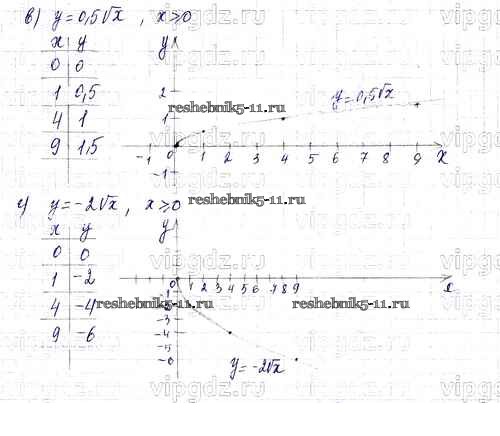 в) y = 0,5√x , x ≥ 0
x | y
0 | 0
1 | 0,5
4 | 1
9 | 1,5
y
2
1
y = 0,5√x
-1 0 1 2 3 4 5 6 7 8 9 x
-1
reshebnik5-11.ru
г) y = -2√x , x ≥ 0
x | y
0 | 0
1 | -2
4 | -4
9 | -6
reshebnik5-11.ru
y
0 1 2 3 4 5 6 7 8 9 x
-3
-4
-5
-6
y = -2√x
reshebnik5-11.ru
reshebnik5-11.ru
vipgdz.ru
vipgdz.ru
vipgdz.ru
vipgdz.ru